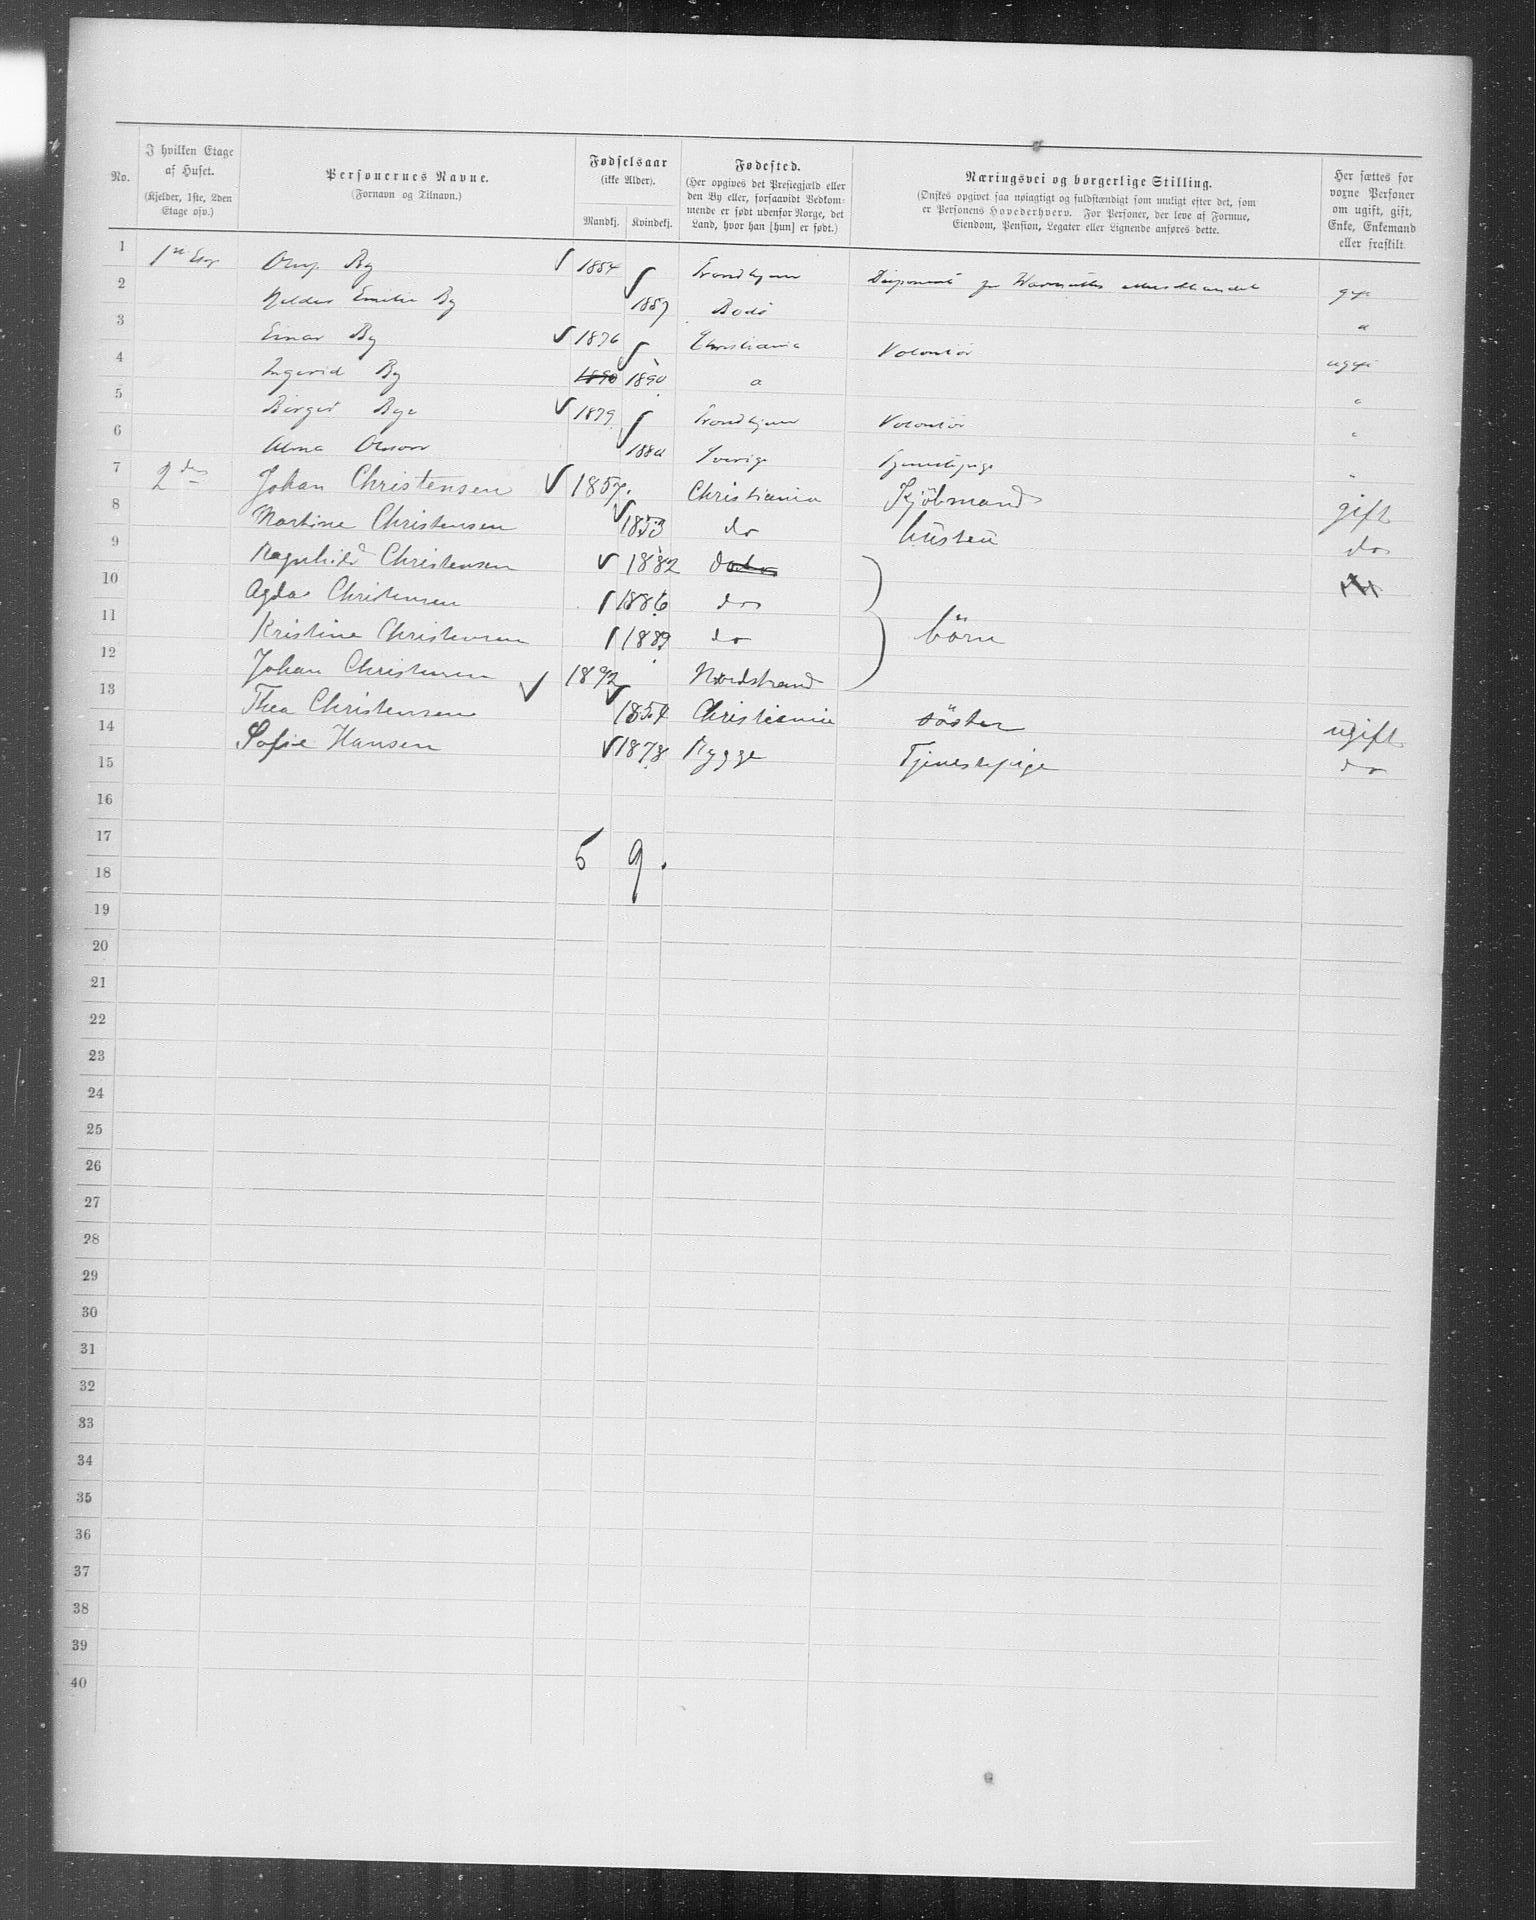 No.
I hvilken Etage af Huset. (Kjelder, 1ste, 2den Etage osv.)
Personernes Navne. (Fornavn og Tilnavn.)
Fødselsaar (ikke Alder).
Mandkj. Kvindekj.
Fødested. (Her opgives det Præstegjæld eller den By eller, forsaavidt Vedkommende er født udenfor Norge, det Land, hvor han [hun] er født.)
Næringsvei og borgerlige Stilling. (Ønskes opgivet saa nøiagtigt og fuldstændigt som muligt efter det, som er Personens Hovederhverv. For Personer, der leve af Formue, Eiendom, Pension, Legater eller Lignende anføres dette.)
Her sættes for voxne Personer om ugift, gift, Enke, Enkemand eller fraskilt.
1 1ste Etg By 1854 Trondhjem gift
2 Emilie By 1857 Bodø "
3 Einar By 1876 Christiania Volontør ugift
4 Ingerid By 1890 1890 " "
5 Birger Bye 1879 Trondhjem Volontør "
6 Alma Olsson Sverige Tjenestepige "
7 2den Johan Christensen 1857. Christiania Kjöbmand gift
8 Martine Christensen 1853 do hustru do
9 Ragnhild Christensen 1882 do
10 Agda Christensen 1886 do
11 Kristine Christensen 1889 do börn
12 Johan Christensen 1892 Nordstrand
13 Thea Christensen 1854 Christiania söster ugift
14 Sofie Hansen 1878 Rygge Tjenestepige do
15
16
17
5 9.
18
19
20
21
22
23
24
25
26
27
28
29
30
31
32
33
34
35
36
37
38
39
40